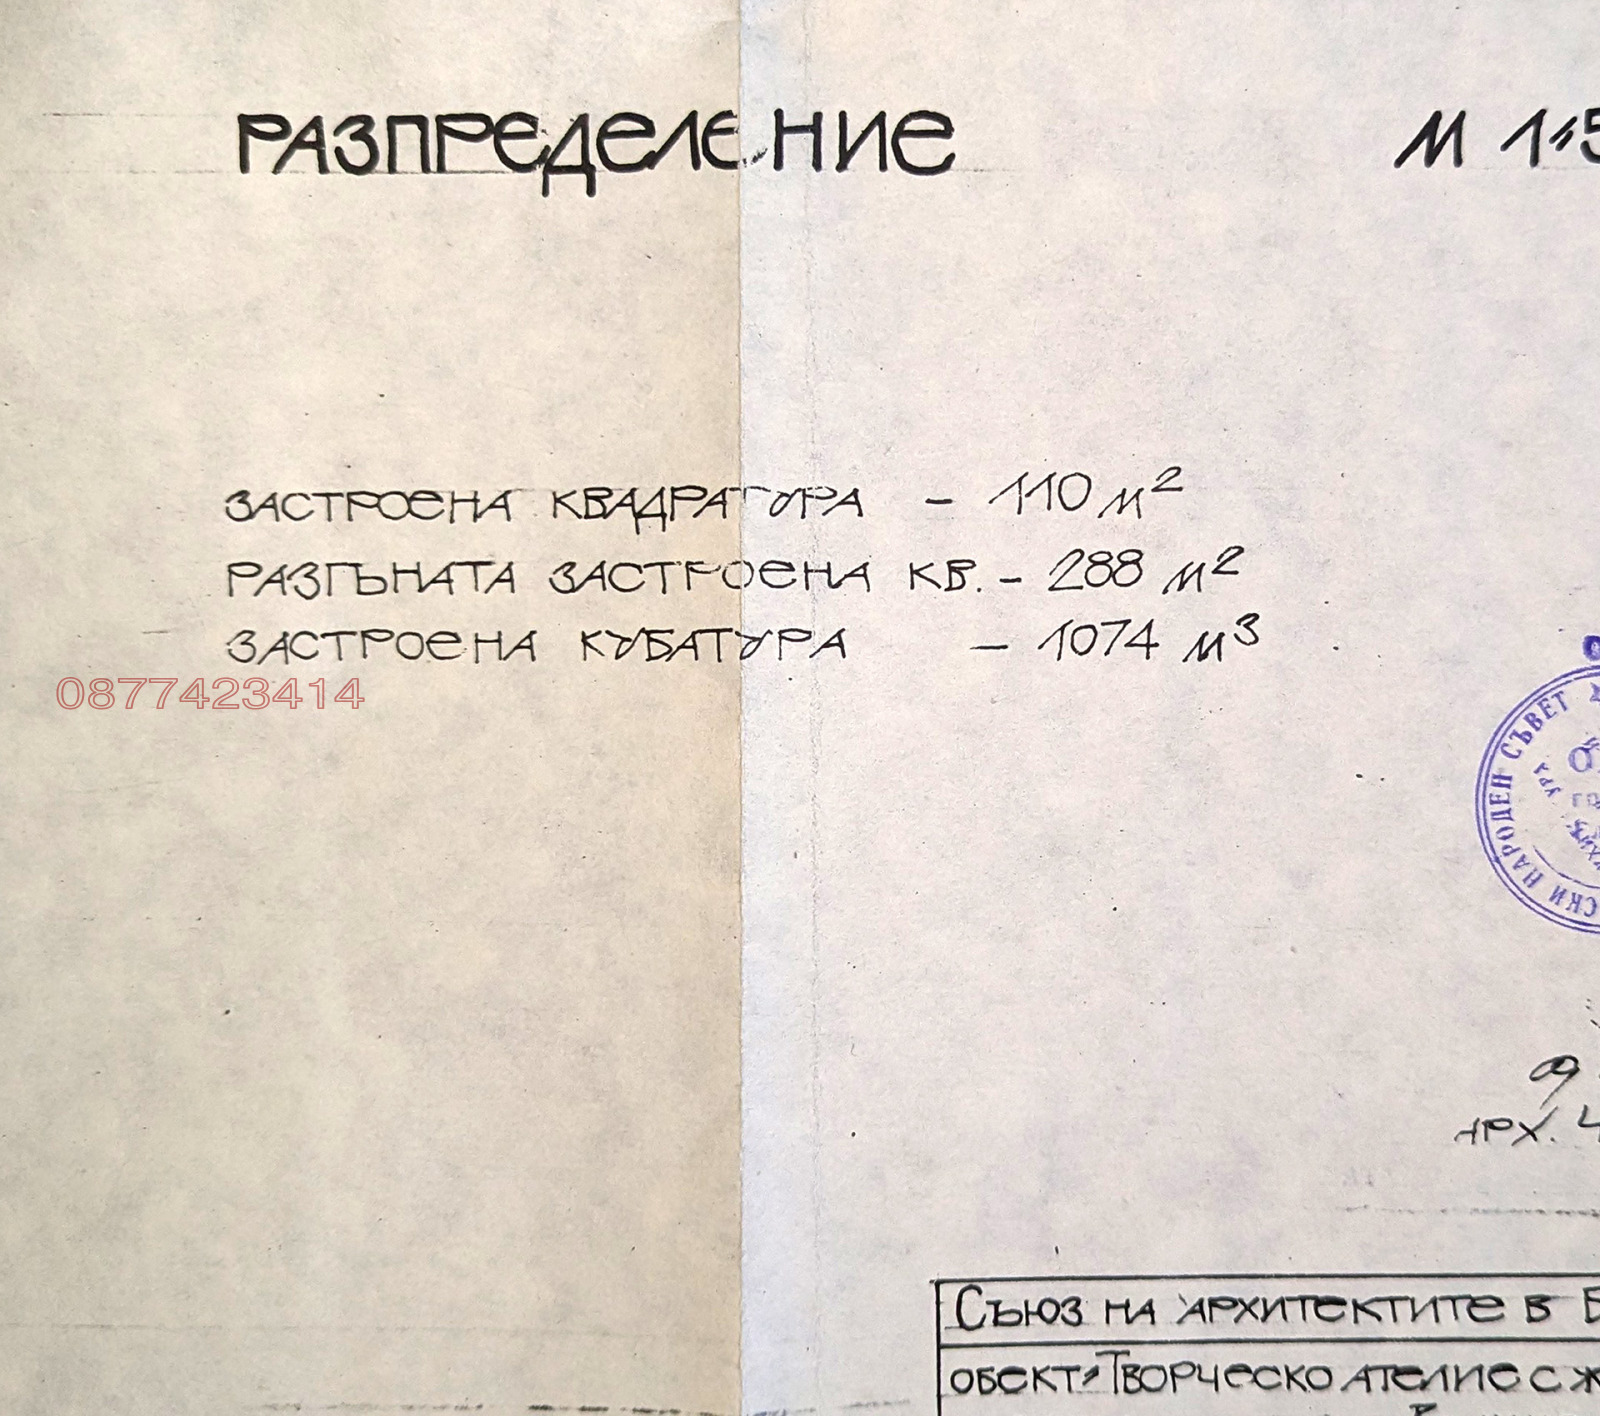 РАЗПРЕДЕЛЕНИЕ М 1:5
ЗАСТРОЕНА КВАДРАТУРА – 110 м²
РАЗГЪНАТА ЗАСТРОЕНА КВ. – 288 м²
ЗАСТРОЕНА КУБАТУРА – 1074 м³
0877423414
НАРОДЕН СЪВЕТ
АРХ.
СЪЮЗ НА АРХИТЕКТИТЕ В Б
ОБЕКТ: ТВОРЧЕСКО АТЕЛИЕ С Ж